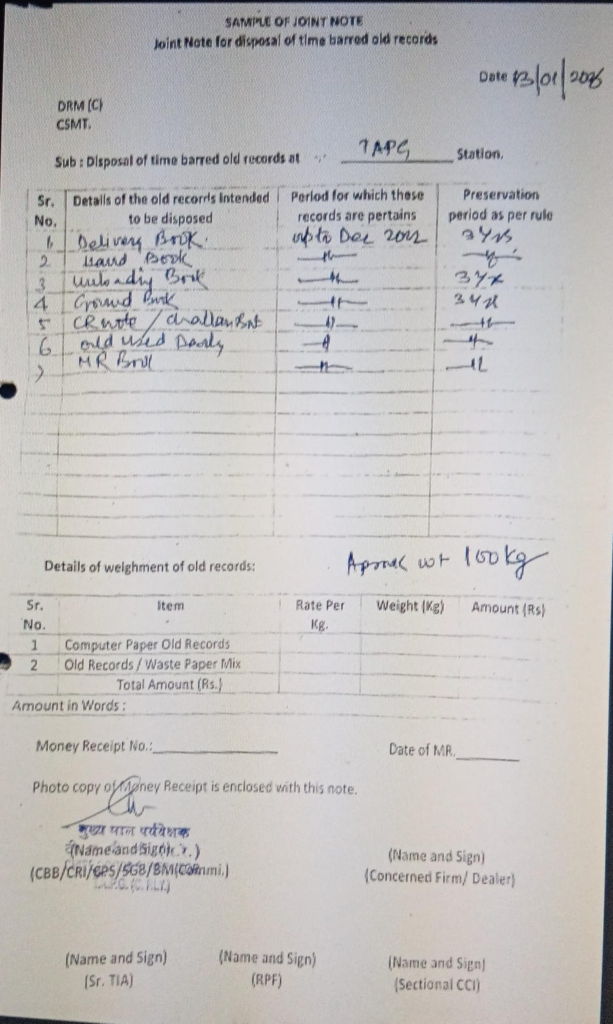 SAMPLE OF JOINT NOTE
Joint Note for disposal of time barred old records
Date 13/01/2026
DRM (C)
CSMT.
Sub : Disposal of time barred old records at TAPG Station.
Sr. No. Details of the old records intended to be disposed Period for which these records are pertains Preservation period as per rule
1. Delivery Book. upto Dec 2022 3 Yrs
2 Hand Book —"— —"—
3 Unloading Book —"— 3 Yr
4 Ground Book —"— 3 Yr
5 CR note / challan —"— —"—
6 old used —"— —"—
7 MR Book —"— —"—
Details of weighment of old records: wt 100 kg
Sr. No. Item Rate Per Kg. Weight (Kg) Amount (Rs)
1 Computer Paper Old Records
2 Old Records / Waste Paper Mix
Total Amount (Rs.)
Amount in Words :
Money Receipt No.:__________ Date of MR.______
Photo copy of Money Receipt is enclosed with this note.
मुख्य माल पर्यवेक्षक
(Name and Sign) (Name and Sign)
(CBB/CRI/GPS/SGB/BM(Commi.) (Concerned Firm/ Dealer)
(Name and Sign) (Name and Sign) (Name and Sign)
(Sr. TIA) (RPF) (Sectional CCI)